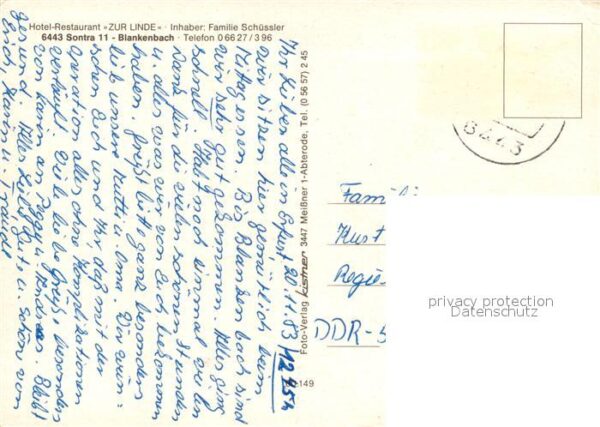 Hotel-Restaurant »ZUR LINDE« · Inhaber: Familie Schüssler
6443 Sontra 11 - Blankenbach · Telefon 0 66 27 / 3 96
Ihr lieben alle in Erfurt, 20.11.83 12.45h
wir sitzen hier gemütlich beim
Mittagessen. Bis Blankenbach sind
wir sehr gut gekommen. Alles ging
schnell. Habt noch einmal vielen
Dank für die vielen schönen Stunden
u. alles was wir von Euch bekommen
haben. Grüßt bitte ganz besonders
lieb unsere Mutti u. Oma. Wir wün-
schen Euch und Ihr, daß mit der
Operation alles ohne Komplikationen
verläuft. Viele liebe Grüße, besonders
von Karin an Peggy u. Bleibt
gesund. Alles Liebe, gute u. schon von
Erich, Karin u. Traudl
Foto-Verlag kistner 3447 Meißner 1-Abterode, Tel. (0 56 57) 2 45
149
6443
Famili
Kurt
Regie
DDR-5
privacy protection
Datenschutz